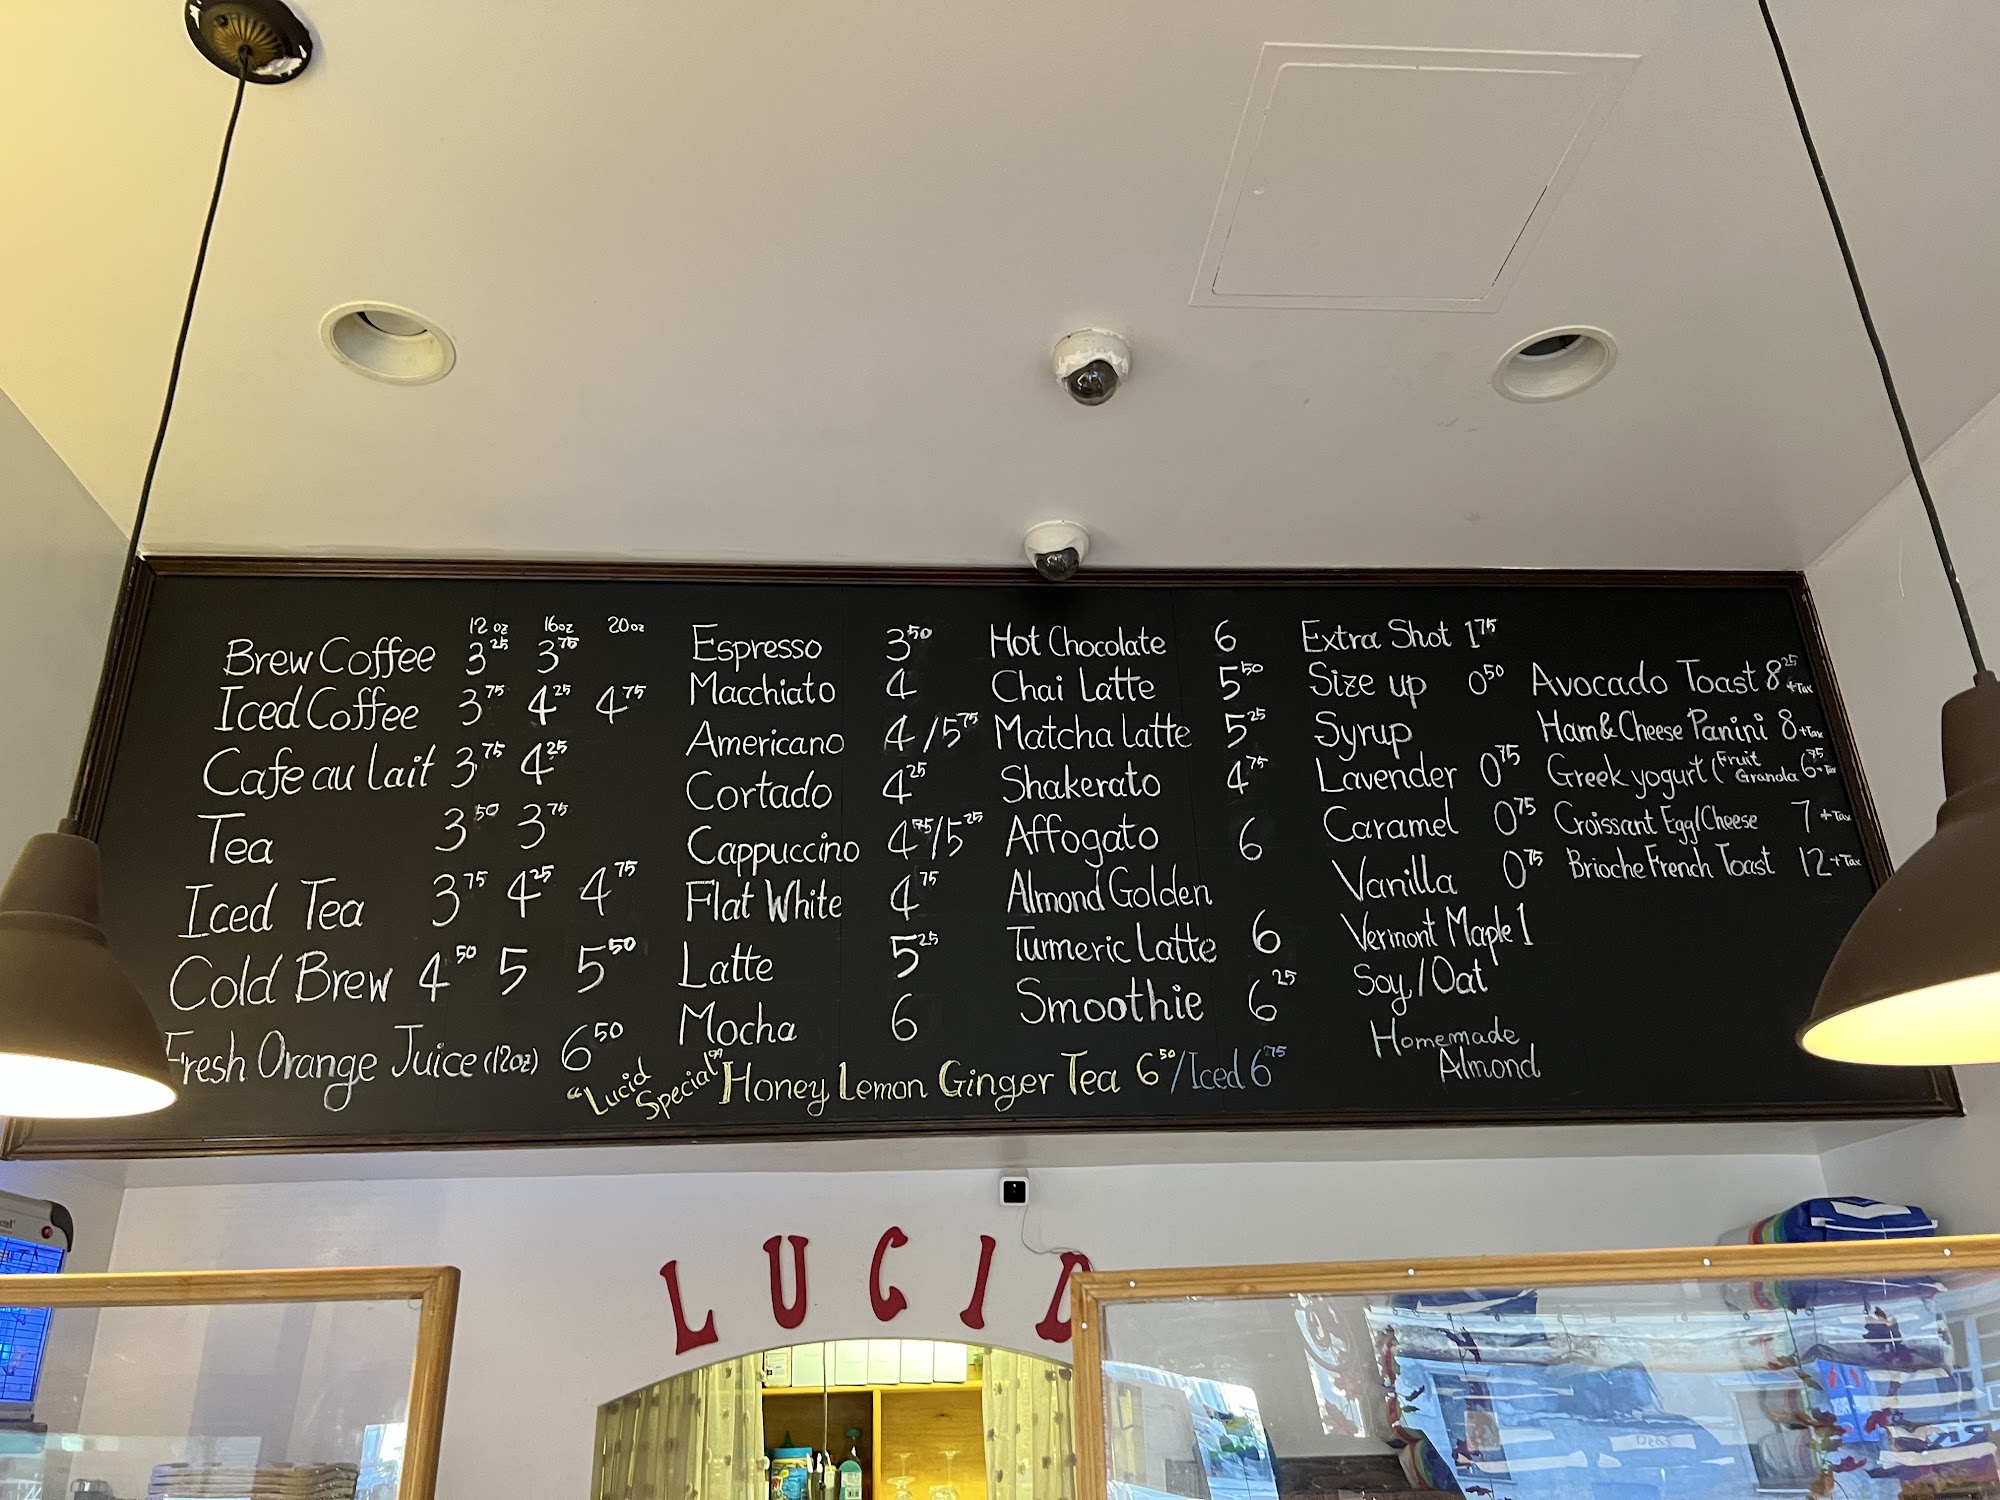 12 oz 16oz 20oz
Brew Coffee 3.25 3.75
Iced Coffee 3.75 4.25 4.75
Cafe au lait 3.75 4.25
Tea 3.50 3.75
Iced Tea 3.75 4.25 4.75
Cold Brew 4.50 5 5.50
Fresh Orange Juice (12oz) 6.50
Espresso 3.50
Macchiato 4
Americano 4/5.75
Cortado 4.25
Cappuccino 4.75/5.25
Flat White 4.75
Latte 5.25
Mocha 6
Hot Chocolate 6
Chai Latte 5.50
Matcha Latte 5.25
Shakerato 4.75
Affogato 6
Almond Golden
Turmeric Latte 6
Smoothie 6.25
"Lucid Special" Honey Lemon Ginger Tea 6.50/Iced 6.75
Extra Shot 1.75
Size up 0.50
Syrup
Lavender 0.75
Caramel 0.75
Vanilla 0.75
Vermont Maple 1
Soy/Oat
Homemade
Almond
Avocado Toast 8.25 +Tax
Ham & Cheese Panini 8 +Tax
Greek yogurt (Fruit Granola 6.75 +Tax
Croissant Egg/Cheese 7 +Tax
Brioche French Toast 12 +Tax
LUCID